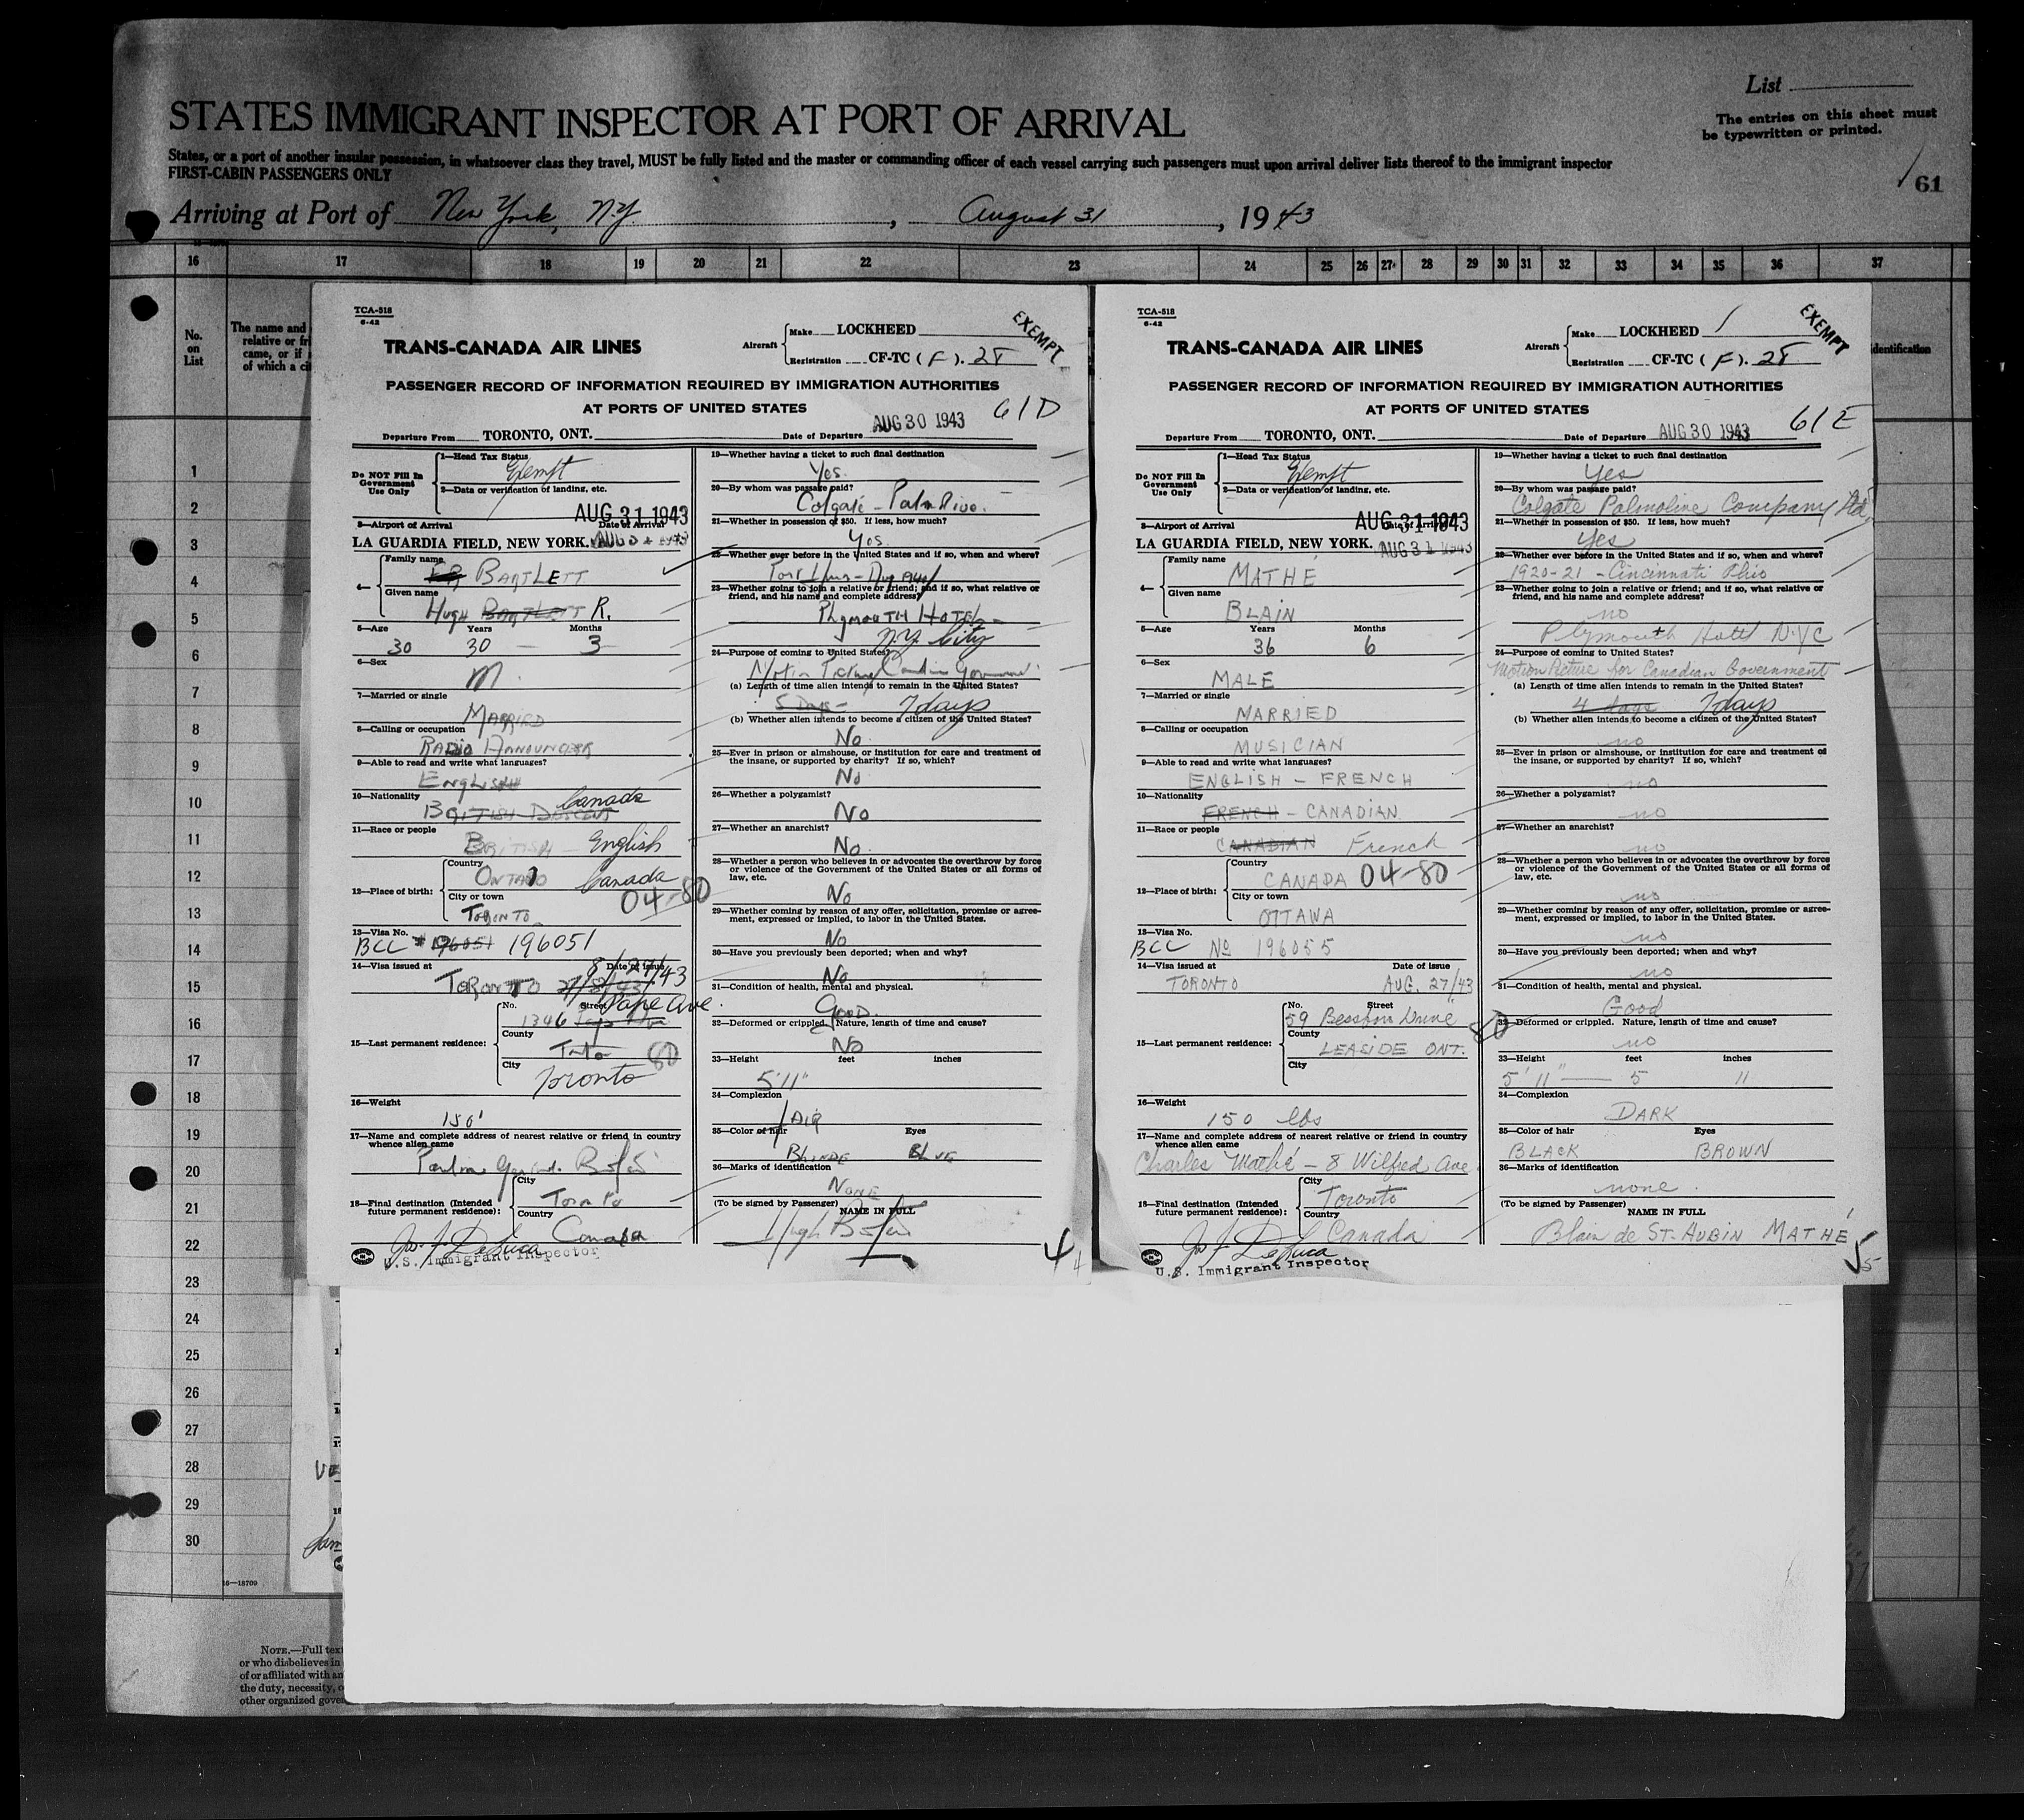 List
STATES IMMIGRANT INSPECTOR AT PORT OF ARRIVAL
The entries on this sheet must
be typewritten or printed.
States, or a port of another insular possession, in whatsoever class they travel, MUST be fully listed and the master or commanding officer of each vessel carrying such passengers must upon arrival deliver lists thereof to the immigrant inspector
FIRST-CABIN PASSENGERS ONLY
61
Arriving at Port of New York, N.Y. , August 31 , 1943
16 17 18 19 20 21 22 23 24 25 26 27 28 29 30 31 32 33 34 35 36 37
No.
on
List
The name and
relative or fri
came, or if
of which a ci
identification
1
2
3
4
5
6
7
8
9
10
11
12
13
14
15
16
17
18
19
20
21
22
23
24
25
26
27
28
29
30
16—18709
NOTE.—Full tex
or who disbelieves in
of or affiliated with an
the duty, necessity, o
other organized gove
TCA-518
6-42
TRANS-CANADA AIR LINES
Aircraft
Make LOCKHEED
Registration CF-TC (F). 25
EXEMPT
PASSENGER RECORD OF INFORMATION REQUIRED BY IMMIGRATION AUTHORITIES
AT PORTS OF UNITED STATES
61D
Departure From TORONTO, ONT.
Date of Departure AUG 30 1943
Do NOT Fill In
Government
Use Only
1—Head Tax Status
Exempt
2—Data or verification of landing, etc.
3—Airport of Arrival
Date of Arrival
AUG 31 1943
LA GUARDIA FIELD, NEW YORK. AUG 31 1943
4—
Family name
BARTLETT
Given name
HUGH BARTLETT R.
5—Age Years Months
30 30 — 3
6—Sex
M.
7—Married or single
MARRIED
8—Calling or occupation
RADIO ANNOUNCER
9—Able to read and write what languages?
ENGLISH
10—Nationality
BRITISH DESCENT Canada
11—Race or people
BRITISH — English
12—Place of birth:
Country
ONTARIO Canada
City or town
04-80
TORONTO
13—Visa No.
BCC # 196051 196051
14—Visa issued at
Date of issue
TORONTO 8/27/43
15—Last permanent residence:
No. Street
1346 Pape Ave
County
80
City
Toronto
16—Weight
150
17—Name and complete address of nearest relative or friend in country
whence alien came
18—Final destination (Intended
future permanent residence):
City
Toronto
Country
Canada
Jos. J. DeLuca
U.S. Immigrant Inspector
19—Whether having a ticket to such final destination
Yes.
20—By whom was passage paid?
Colgate - Palmolive.
21—Whether in possession of $50. If less, how much?
Yes.
22—Whether ever before in the United States and if so, when and where?
23—Whether going to join a relative or friend; and if so, what relative or
friend, and his name and complete address?
PLYMOUTH HOTEL -
N.Y. City
24—Purpose of coming to United States?
Motion Picture Canadian Government
(a) Length of time alien intends to remain in the United States?
5 Days - 7 days
(b) Whether alien intends to become a citizen of the United States?
No
25—Ever in prison or almshouse, or institution for care and treatment of
the insane, or supported by charity? If so, which?
No
26—Whether a polygamist?
No
27—Whether an anarchist?
No.
28—Whether a person who believes in or advocates the overthrow by force
or violence of the Government of the United States or all forms of
law, etc.
No
29—Whether coming by reason of any offer, solicitation, promise or agree-
ment, expressed or implied, to labor in the United States.
No
30—Have you previously been deported; when and why?
No
31—Condition of health, mental and physical.
GOOD.
32—Deformed or crippled. Nature, length of time and cause?
No
33—Height feet inches
5'11"
34—Complexion
FAIR
35—Color of hair Eyes
BLONDE BLUE
36—Marks of identification
NONE
(To be signed by Passenger)
NAME IN FULL
4
TCA-518
6-42
TRANS-CANADA AIR LINES
Aircraft
Make LOCKHEED
Registration CF-TC (F). 25
EXEMPT
PASSENGER RECORD OF INFORMATION REQUIRED BY IMMIGRATION AUTHORITIES
AT PORTS OF UNITED STATES
61E
Departure From TORONTO, ONT.
Date of Departure AUG 30 1943
Do NOT Fill In
Government
Use Only
1—Head Tax Status
Exempt
2—Data or verification of landing, etc.
3—Airport of Arrival
Date of Arrival
AUG 31 1943
LA GUARDIA FIELD, NEW YORK. AUG 31 1943
4—
Family name
MATHÉ
Given name
BLAIN
5—Age Years Months
36 6
6—Sex
MALE
7—Married or single
MARRIED
8—Calling or occupation
MUSICIAN
9—Able to read and write what languages?
ENGLISH - FRENCH
10—Nationality
FRENCH - CANADIAN.
11—Race or people
CANADIAN French
12—Place of birth:
Country
CANADA 04-80
City or town
OTTAWA
13—Visa No.
BCC No 196055
14—Visa issued at Date of issue
TORONTO AUG. 27/43
15—Last permanent residence:
No. Street
59 Bessboro Drive
80
County
LEASIDE ONT.
City
16—Weight
150 lbs
17—Name and complete address of nearest relative or friend in country
whence alien came
Charles Mathé - 8 Wilfred Ave.
18—Final destination (Intended
future permanent residence):
City
Toronto
Country
Canada
Jos J. DeLuca
U.S. Immigrant Inspector
19—Whether having a ticket to such final destination
Yes
20—By whom was passage paid?
Colgate Palmolive Company Ltd.
21—Whether in possession of $50. If less, how much?
Yes
22—Whether ever before in the United States and if so, when and where?
1920-21 - Cincinnati Ohio
23—Whether going to join a relative or friend; and if so, what relative or
friend, and his name and complete address?
no
Plymouth Hotel N.Y.C
24—Purpose of coming to United States?
Motion Picture for Canadian Government
(a) Length of time alien intends to remain in the United States?
4 days 7 days
(b) Whether alien intends to become a citizen of the United States?
no
25—Ever in prison or almshouse, or institution for care and treatment of
the insane, or supported by charity? If so, which?
no
26—Whether a polygamist?
no
27—Whether an anarchist?
no
28—Whether a person who believes in or advocates the overthrow by force
or violence of the Government of the United States or all forms of
law, etc.
no
29—Whether coming by reason of any offer, solicitation, promise or agree-
ment, expressed or implied, to labor in the United States.
no
30—Have you previously been deported; when and why?
no
31—Condition of health, mental and physical.
Good
32—Deformed or crippled. Nature, length of time and cause?
no
33—Height feet inches
5' 11" — 5 11
34—Complexion
DARK
35—Color of hair Eyes
BLACK BROWN
36—Marks of identification
none.
(To be signed by Passenger)
NAME IN FULL
Blain de ST. AUBIN MATHÉ
5